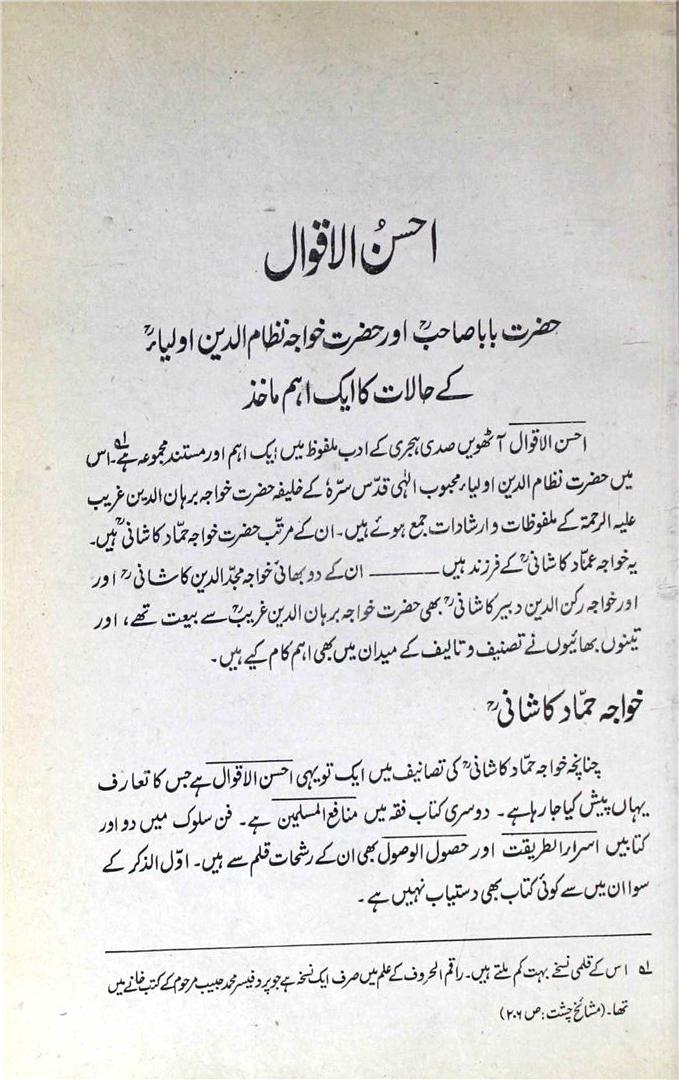 احسنُ الاقوال
حضرت بابا صاحبؒ اور حضرت خواجہ نظام الدین اولیاءؒ
کے حالات کا ایک اہم ماخذ
احسن الاقوال آٹھویں صدی ہجری کے ادب ملفوظ میں ایک اہم اور مستند مجموعہ ہے۔ لہ اس
میں حضرت نظام الدین اولیاء محبوب الٰہی قدّس سرّہٗ کے خلیفہ حضرت خواجہ برہان الدین غریب
علیہ الرحمۃ کے ملفوظات و ارشادات جمع ہوئے ہیں۔ ان کے مرتّب حضرت خواجہ حمّاد کاشانیؒ ہیں۔
یہ خواجہ عمّاد کاشانیؒ کے فرزند ہیں ——— ان کے دو بھائی خواجہ مجدّ الدین کاشانیؒ اور
اور خواجہ رکن الدین دبیر کاشانیؒ بھی حضرت خواجہ برہان الدین غریبؒ سے بیعت تھے، اور
تینوں بھائیوں نے تصنیف و تالیف کے میدان میں بھی اہم کام کیے ہیں۔
خواجہ حمّاد کاشانیؒ
چنانچہ خواجہ حمّاد کاشانیؒ کی تصانیف میں ایک تو یہی احسن الاقوال ہے جس کا تعارف
یہاں پیش کیا جا رہا ہے۔ دوسری کتاب فقہ میں منافع المسلمین ہے۔ فن سلوک میں دو اور
کتابیں اسرار الطریقت اور حصول الوصول بھی ان کے رشحات قلم سے ہیں۔ اوّل الذکر کے
سوا ان میں سے کوئی کتاب بھی دستیاب نہیں ہے۔
لہ اس کے قلمی نسخے بہت کم ملتے ہیں۔ راقم الحروف کے علم میں صرف ایک نسخہ ہے جو پروفیسر محمد حبیب مرحوم کے کتب خانے میں
تھا۔ (مشائخ چشت : ص ۲۰۶)